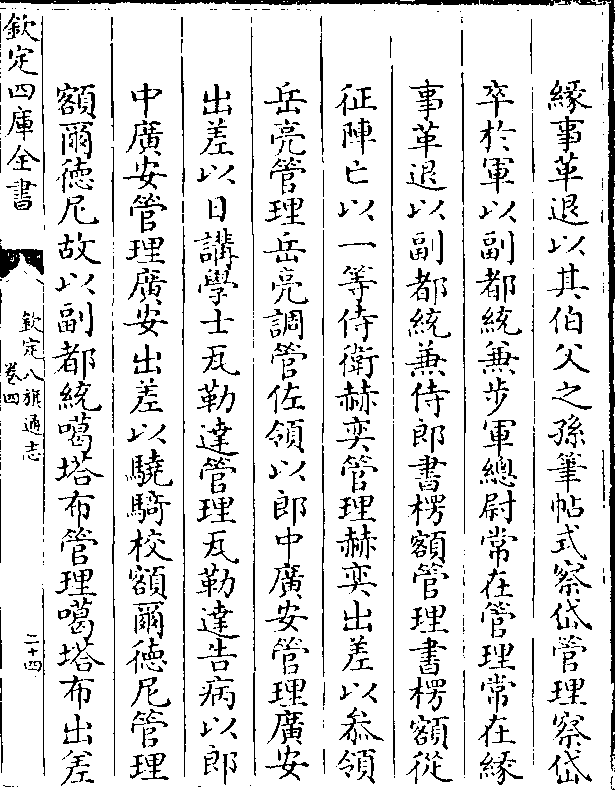 緣事革退以其伯父之孫筆帖式察岱管理察岱
卒於軍以副都統兼步軍總尉常在管理常在緣
事革退以副都統兼侍郎書楞額管理書楞額從
征陣亡以一等侍衛赫奕管理赫奕出差以叅領
岳亮管理岳亮調管佐領以郎中廣安管理廣安
出差以日講學士瓦勒達管理瓦勒達告病以郎
中廣安管理廣安出差以驍騎校額爾徳尼管理
額爾徳尼故以副都統噶塔布管理噶塔布出差
欽定四庫全書
欽定八旗通志
卷四
二十四